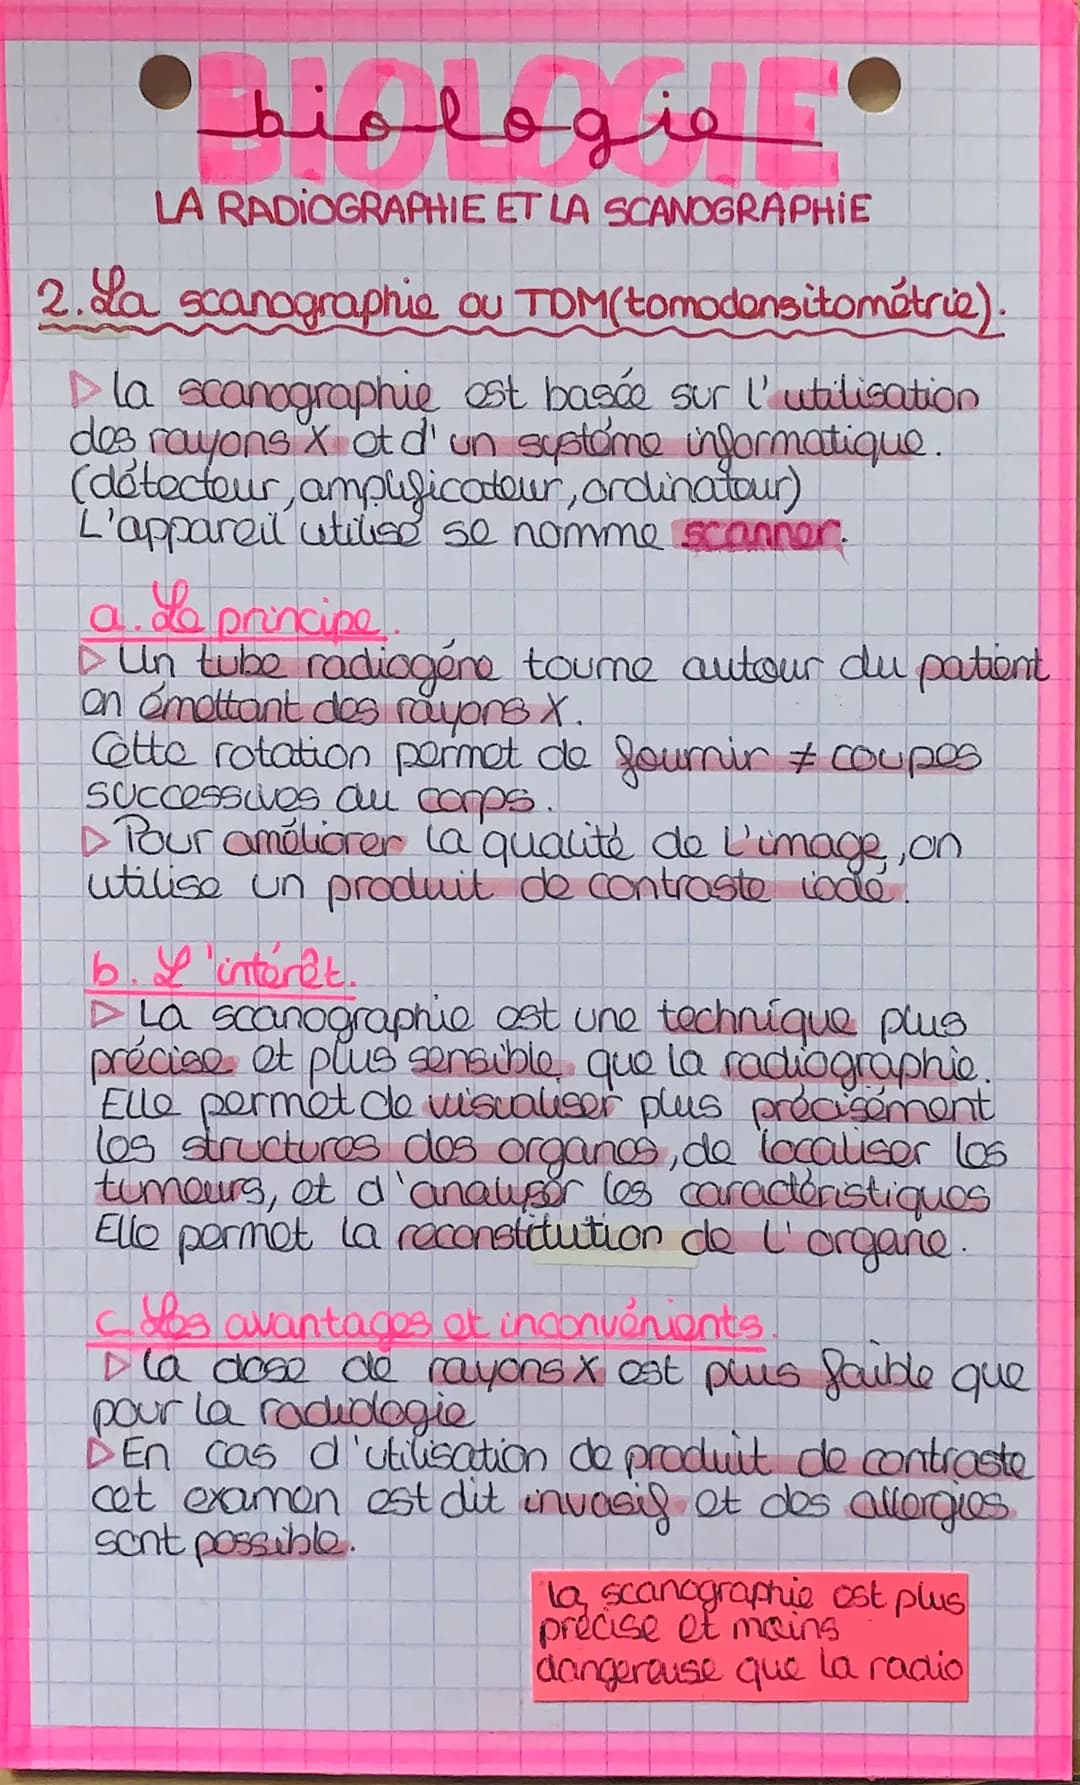 BIOLOGIE
biologie
LA RADIOGRAPHIE ET LA SCANOGRAPHIE
2. La scanographie ou TDM (tomodensitométrie).
▷ la scanographie est basée sur l'utilisation
des rayons X et d'un système informatique.
(détecteur, amplificateur, ordinateur)
L'appareil utilisé se nomme scanner.
a. Le principe.
▷ Un tube radiogène tourne autour du patient
en émettant des rayons X.
Cette rotation permet de fournir ≠ coupes
successives du corps.
▷ Pour améliorer la qualité de l'image, on
utilise un produit de contraste iodé.
b. L'intérêt.
▷ La scanographie est une technique plus
précise et plus sensible que la radiographie.
Elle permet de visualiser plus précisément
les structures des organes, de localiser les
tumeurs, et d'analyser les caractéristiques
Elle permet la reconstitution de l'organe.
c. Les avantages et inconvénients.
▷ la dose de rayons X est plus faible que
pour la radiologie
▷ En cas d'utilisation de produit de contraste
cet examen est dit invasif et des allergies
sont possible.
la scanographie est plus
précise et moins
dangereuse que la radio